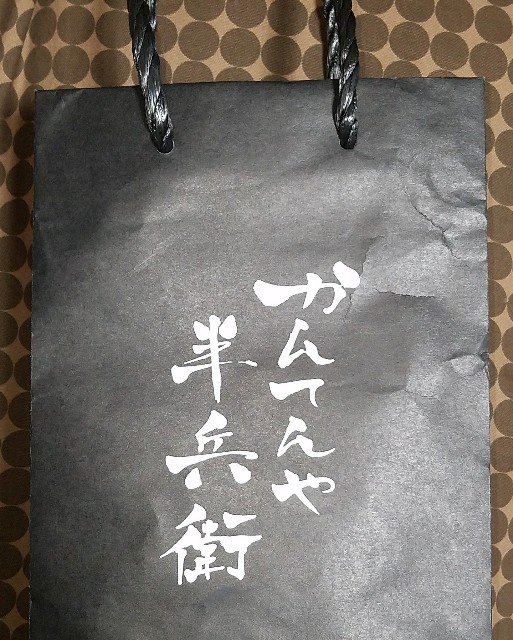 かんてんや
半兵衛